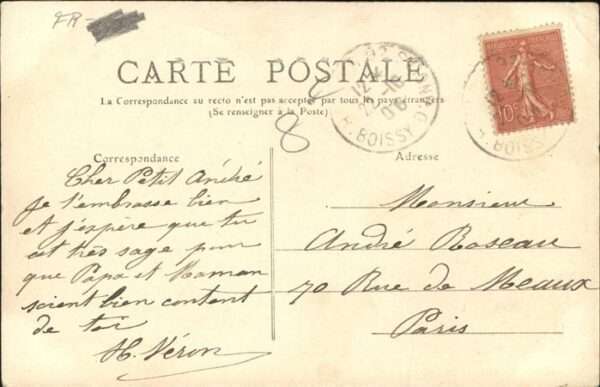 FR-
CARTE POSTALE
La Correspondance au recto n'est pas acceptée par tous les pays étrangers
(Se renseigner à la Poste)
8
BOISSY
10c
Correspondance
Cher Petit André
Je t'embrasse bien
et j'espère que tu
est très sage pour
que Papa et Maman
soient bien content
de toi
H. Véron
Adresse
Monsieur
André Roseau
70 Rue de Meaux
Paris